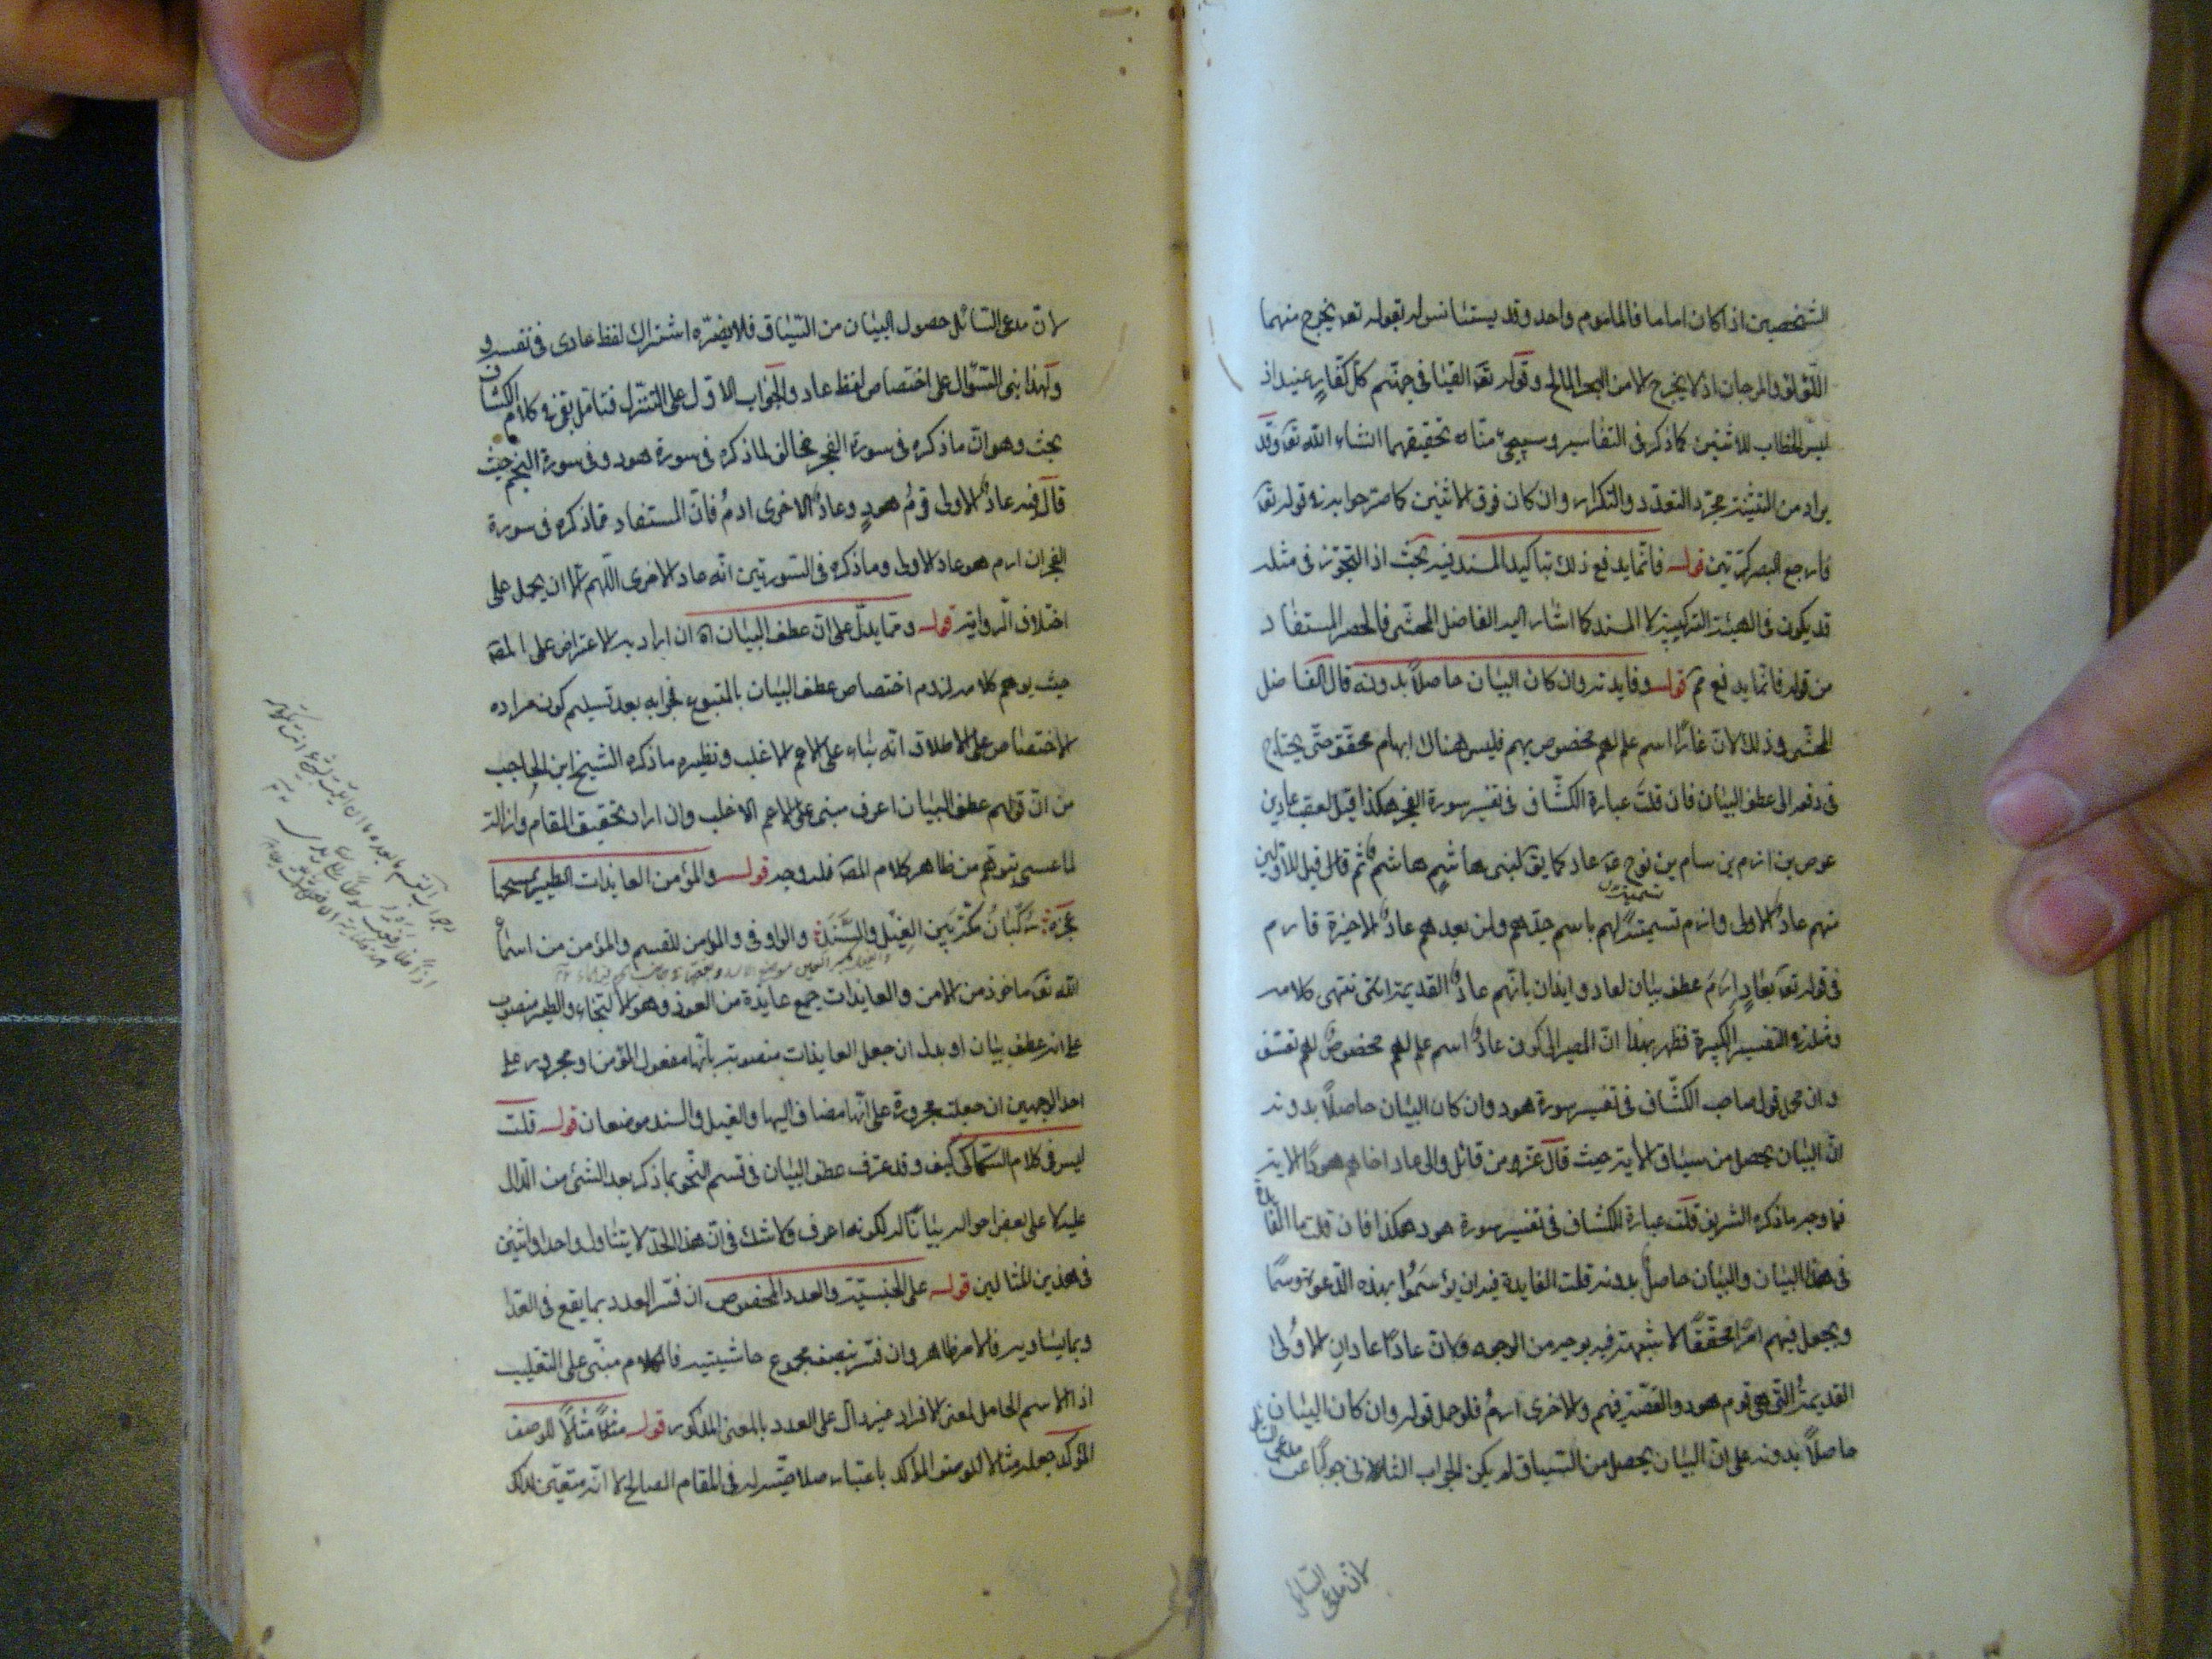 الشخصين اذا كان اماما فالماموم واحد وقد يستانس له بقوله تعه يخرج منهما
اللؤلؤ والمرجان اذ لا يخرج الا من البحر المالح وقوله تعه القيا فى جهنم كل كفار عنيد اذ
ليس الخطاب للاثنين كما ذكر فى التفاسير وسيجئ منا تحقيقهما انشاء الله تعه وقد
يراد من التثنية مجرد التعدد والتكرار وان كان فوق الاثنين كما صرحوا به فى قوله تعه
فارجع البصر كرتين قوله فانما يدفع ذلك بتاكيد المسند فيه بحث اذ التجوز فى مثله
قد يكون فى الهيئة التركيبية لا المسند كما اشار اليه الفاضل المحشى فالحصر المستفاد
من قوله فانما يدفع مم قوله وفايدته وان كان البيان حاصلاً بدونه قال الفاضل
المحشى وذلك لان عاداً اسم علم لهم مخصوص بهم فليس هناك ابهام محقق حتى يحتاج
فى دفعه الى عطف البيان فان قلت عبارة الكشاف فى تفسير سورة الفجر هكذا قيل لعقب عاد بن
عوص بن ارم بن سام بن نوح عه عاد كما يق لبنى هاشم هاشم ثم قال قيل للاولين
منهم عاد الاولى وارم تسمية لهم باسم جدهم ولمن بعدهم عاد الاخيرة فارم
فى قوله تعه بعادٍ اِرَمَ عطف بيان لعاد وايذان بانهم عاد القديمة انتهى كلامه
ومثله فى التفسير الكبير فظهر بهذا ان المصير الى كون عاد اسم علم لهم مخصوص لهم تعسف
وان محل قول صاحب الكشاف فى تفسير سورة هود وان كان البيان حاصلاً بدونه
ان البيان يحصل من سياق الاية حيث قال عز من قائل والى عاد اخاهم هودا الاية
فما وجه ما ذكره الشريف قلت عبارة الكشاف فى تفسير سورة هود هكذا فان قلت ما الفايدة
فى هذا البيان والبيان حاصل بدونه قلت الفايدة فيه ان يوسموا بهذه الدعوة وسما
ويجعل فيهم امرًا محققًا لا شبهة فيه بوجه من الوجوه ولان عادًا عادان الاولى
القديمة التى هى قوم هود والقصة فيهم والاخرى ارم فلو حمل قوله وان كان البيان
حاصلاً بدونه على ان البيان يحصل من السياق لم يكن الجواب الثانى جوابًا عن مدعى السائل
لان مدعى السائل
لان مدعى السائل حصول البيان من السياق فلا يضره اشتراك لفظ عاد فى نفسه
ولهذا بنى السؤال على اختصاص لفظ عاد والجواب الاول على التنزل فتامل بقى فى كلام الكشاف
بحث وهو ان ما ذكره فى سورة الفجر مخالف لما ذكره فى سورة هود وفى سورة النجم حيث
قال فيه عاد الاولى قوم هود وعاد الاخرى ارم فان المستفاد مما ذكره فى سورة
الفجر ان ارم هو عاد الاولى وما ذكره فى السورتين انه عاد الاخرى اللهم الا ان يحمل على
اختلاف الرواية قوله ومما يدل على ان عطف البيان اه ان اراد به الاعتراض على المصه
حيث يوهم كلامه لزوم اختصاص عطف البيان بالمتبوع فجوابه بعد تسليم كون مراده
الاختصاص على الاطلاق انه بناء على الاعم الاغلب ونظيره ما ذكره الشيخ ابن الحاجب
من ان قولهم عطف البيان اعرف مبنى على الاعم الاغلب وان اراد تحقيق المقام وازالة
لما عسى يتوهم من ظاهر كلام المصه فله وجه قوله والمؤمن العايذات الطير يمسحها
عجزه ركبان مكة بين الغيل والسند والواو فى والمؤمن للقسم والمؤمن من اسماء
الله تعه ماخوذ من الامن والعايذات جمع عايذة من العوذ وهو الالتجاء والطير منصوب
على انه عطف بيان او بدل ان جعل العايذات منصوبة بانها مفعول المؤمن او مجرور على
احد الوجهين ان جعلت مجرورة على انها مضاف اليها والغيل والسند موضعان قوله قلت
ليس فى كلام السكاكى كيف وقد عرف عطف البيان فى قسم النحو بما ذكر بعد الشئ من الدال
عليه لا على بعض احواله بيانا له لكونه اعرف ولا شك فى ان هذا الحد لا يتناول واحد واثنين
فى هذين المثالين قوله على الجنسية والعدد المخصوص ان فسر العدد بما يقع فى العد
وبما يساويه فالامر ظاهر وان فسر بنصف مجموع حاشيتيه فالكلام مبنى على التغليب
اذ الاسم الحامل لمعنى الافراد غير دال على العدد بالمعنى المذكور قوله مثلا مثالاً للوصف
المؤكد جعله مثالا للوصف المؤكد باعتبار صلاحيته له فى المقام الصالح لا انه متعين لذلك